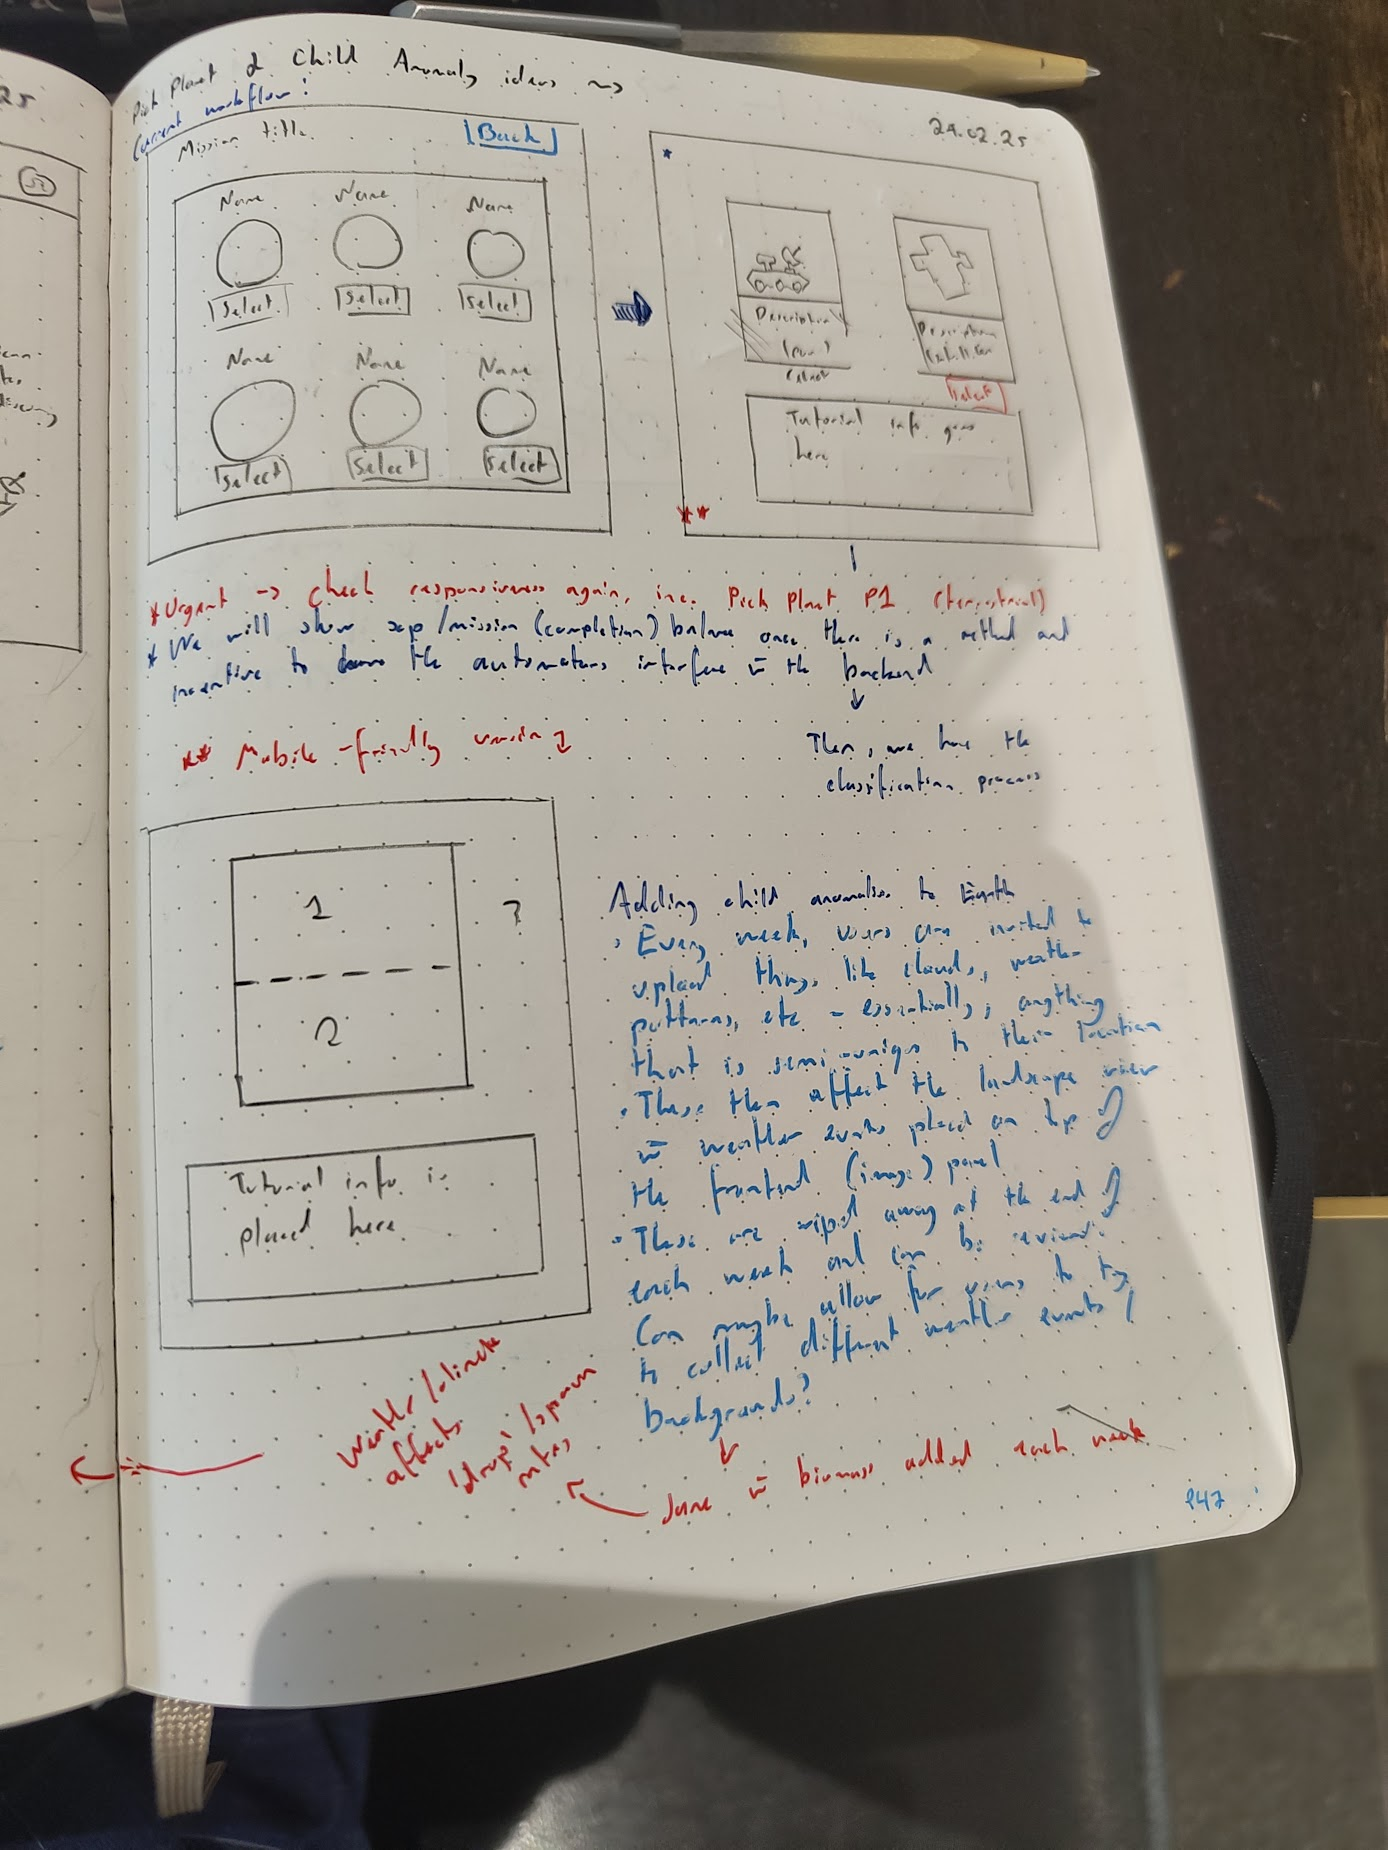 25
Pick Planet & Child Anomaly ideas ~>
Current workflow:
24.02.25
Mission title
Back
Name Name Name
Select Select Select
Name Name Name
Select Select Select
*
Description
Description
Select
Tutorial info goes
here
**
* Urgent -> check responsiveness again, inc. Pick Planet P1 (terrestrial)
* We will show exp/mission (completion) balance once there is a method and
incentive to leave the automatons interface in the backend
Then, we have the
classification process
** Mobile-friendly version
1
?
2
Tutorial info is
placed here
Adding child anomalies to Earth
• Every week, users are invited to
upload things like clouds, weather
patterns, etc - essentially, anything
that is semi-unique to their location
• These then affect the landscape viewer
w weather events placed on top of
the frontend (image) panel
• These are wiped away at the end of
each week and can be reviewed.
Can maybe allow for users to try
to collect different weather events /
backgrounds?
Same w biomass added each week
Weather/climate
affects
'drop'/spawn
rates
P47